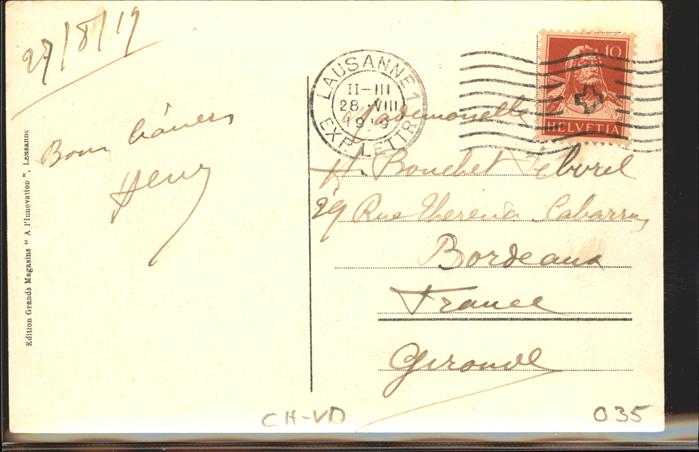 27/8/19
Bons baisers
Henry
Edition Grands Magasins " A l'Innovation ", Lausanne
LAUSANNE 1
II–III
28 VIII
1919
EXP. LETTR.
10
HELVETIA
Mademoiselle
H. Bouchet
29 Rue Theresia Cabarrus
Bordeaux
France
Gironde
CH-VD
035